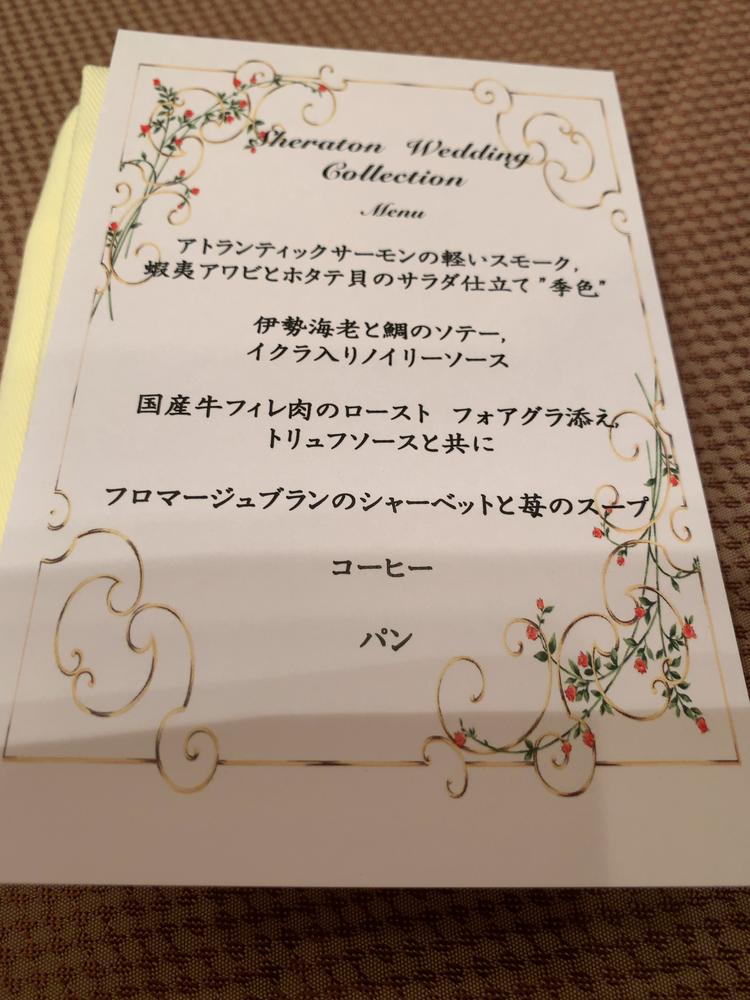 Sheraton Wedding
Collection
Menu
アトランティックサーモンの軽いスモーク,
蝦夷アワビとホタテ貝のサラダ仕立て "季色"
伊勢海老と鯛のソテー,
イクラ入りノイリーソース
国産牛フィレ肉のロースト フォアグラ添え,
トリュフソースと共に
フロマージュブランのシャーベットと苺のスープ
コーヒー
パン